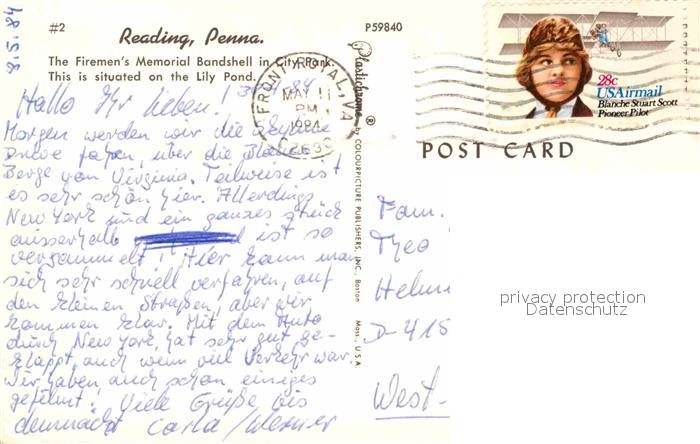 #2
Reading, Penna.
P59840
The Firemen's Memorial Bandshell in City Park.
This is situated on the Lily Pond.
8.5.84
Hallo Ihr lieben!
Morgen werden wir die Skyline
Drive fahren, über die Blauen
Berge von Virginia. Teilweise ist
es sehr schön hier. Allerdings
New York und ein ganzes Stück
ausserhalb ist so
vergammelt! Hier kann man
sich sehr schnell verfahren, auf
den kleinen Straßen, aber wir
kommen klar. Mit dem Auto
durch New York, hat sehr gut ge-
klappt, auch wenn viel Verkehr war.
Wir haben auch schon einiges
gefilmt! Viele Grüße bis
demnächst Carla/Werner
FRONT ROYAL, VA
MAY 11
PM
1984
22630
Plastichrome ® by COLOURPICTURE PUBLISHERS, INC., Boston Mass., U.S.A.
28c
USAirmail
Blanche Stuart Scott
Pioneer Pilot
POST CARD
Fam.
Theo
Helm
D-415
West-
privacy protection
Datenschutz